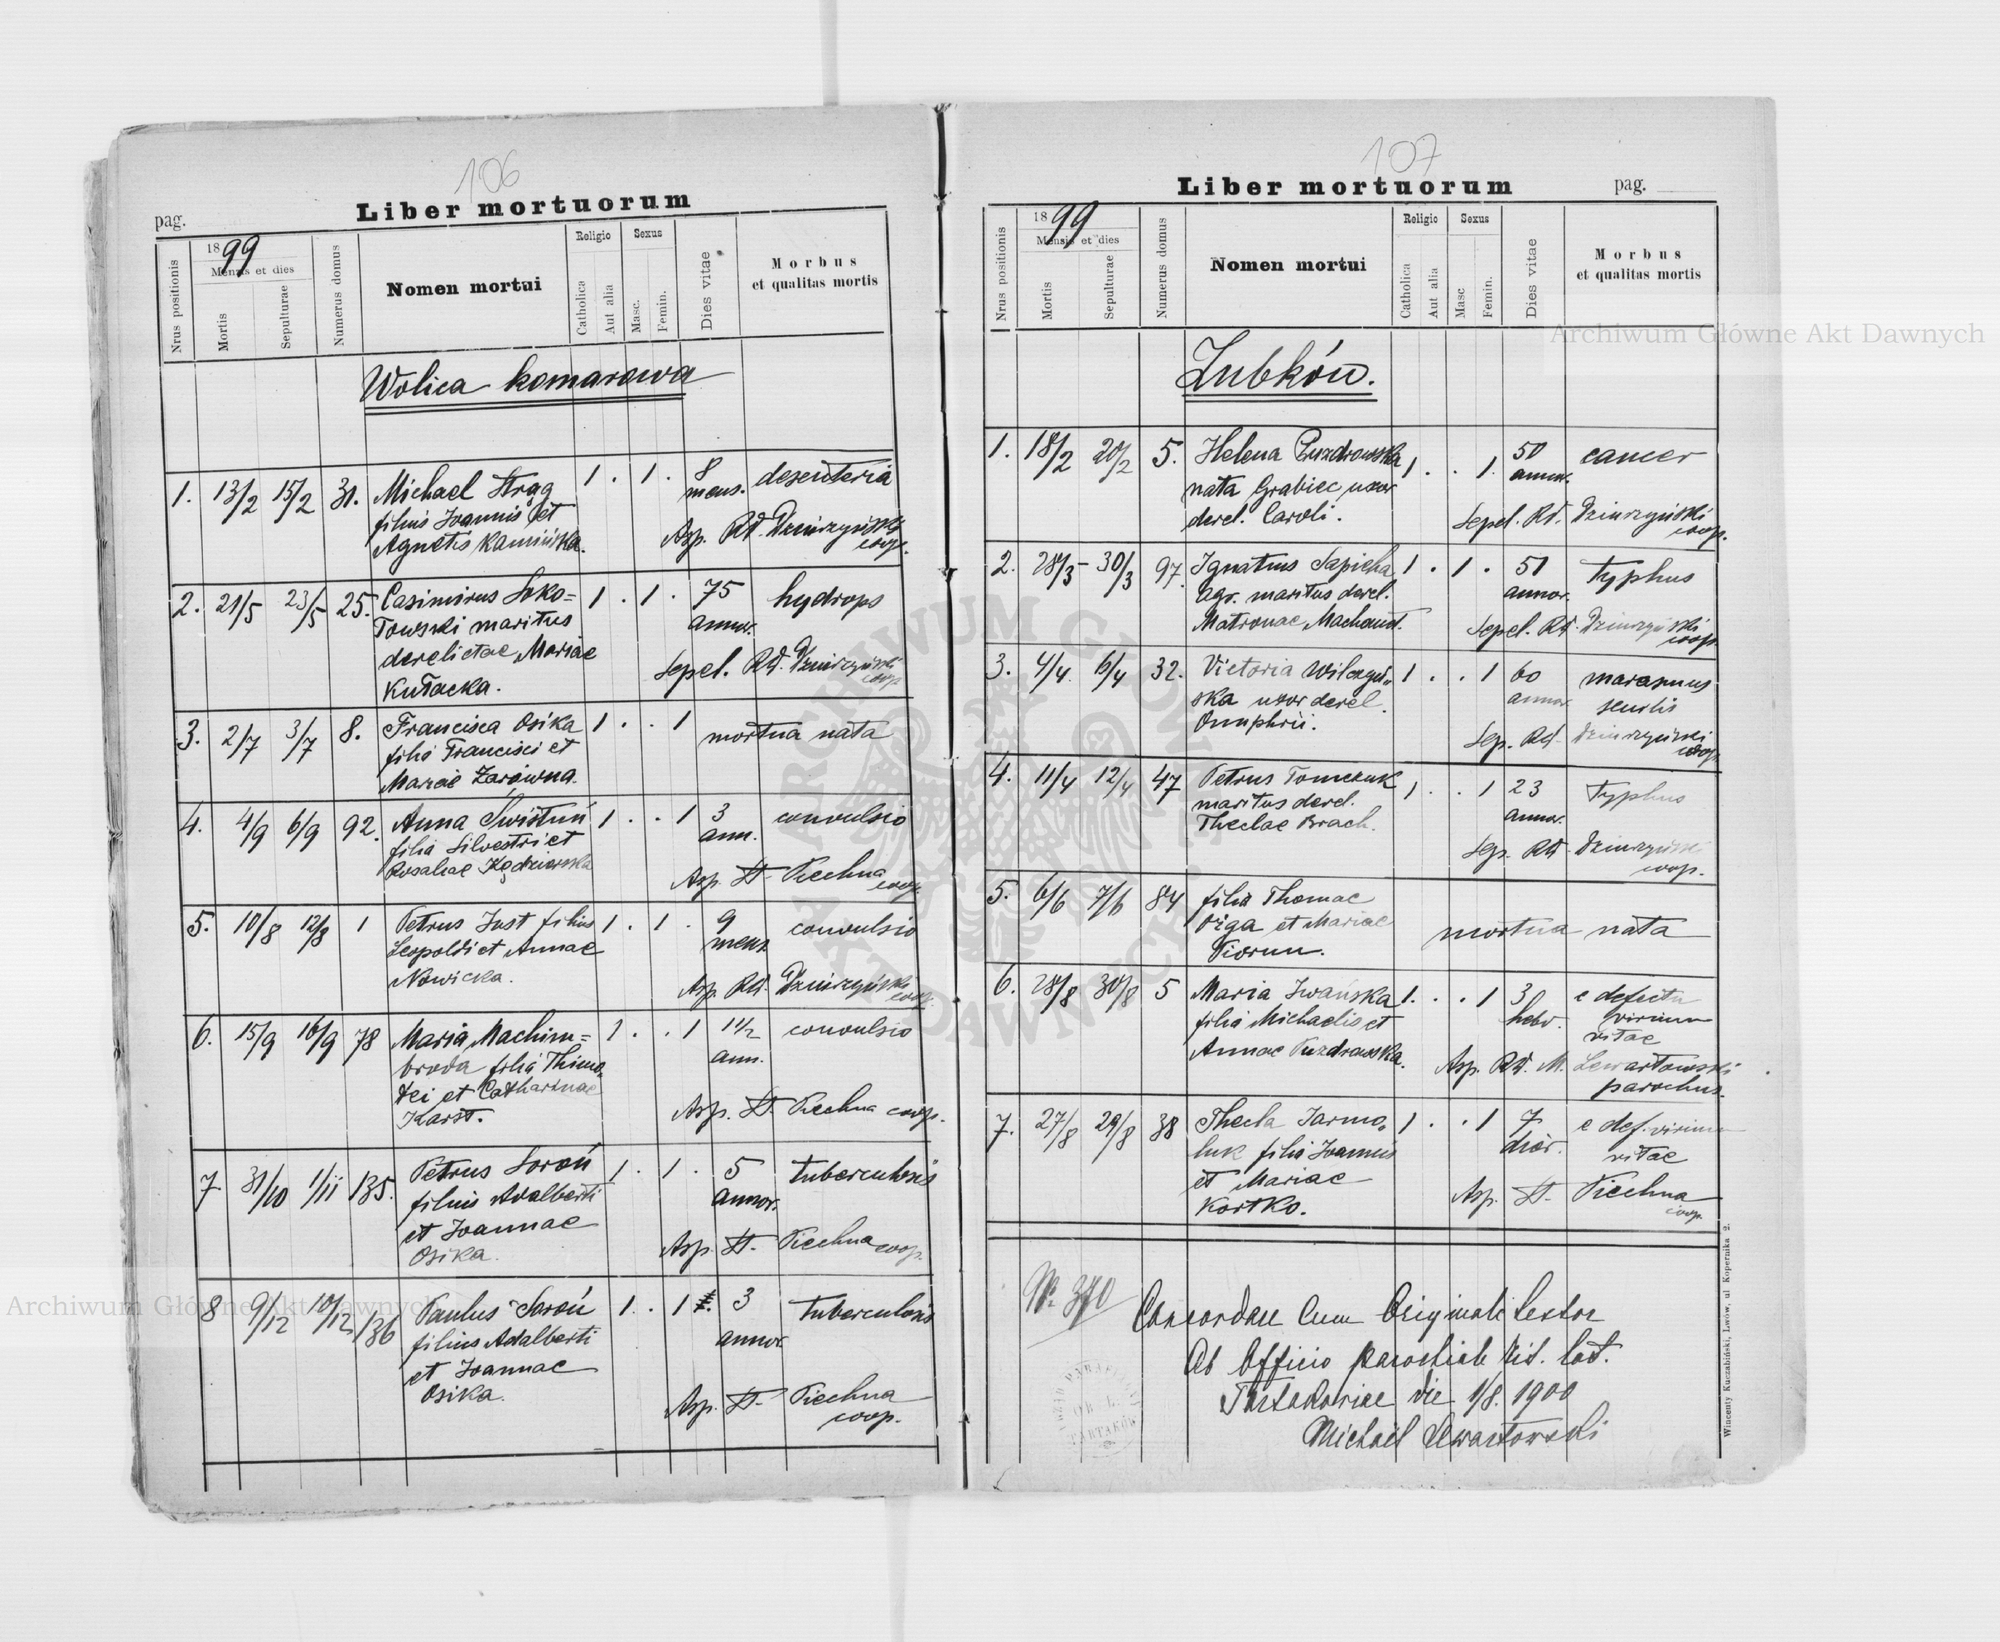 106
pag.
Liber mortuorum
Nrus positionis
1899
Mensis et dies
Mortis
Sepulturae
Numerus domus
Nomen mortui
Religio
Catholica
Aut alia
Sexus
Masc.
Femin.
Dies vitae
Morbus
et qualitas mortis
Wolica komarowa
1. 13/2 15/2 31. Michael Strąg 1 . 1 . 8 desenteria
filius Joannis et mens.
Agnetis Kamińska. Asp. Rd. Dziurzyński
coop.
2. 21/5 23/5 25. Casimirus Soko= 1 . 1 . 75 hydrops
łowski maritus annor.
derelictae Mariae Sepel. Rd. Dziurzyński
Kułacka. coop.
3. 2/7 3/7 8. Francisca Osika 1 . . 1 mortua nata
filia Francisci et
Mariae Żarówna.
4. 4/9 6/9 92. Anna Świstuń 1 . . 1 3 convulsio
filia Silvestri et ann.
Rosaliae Kędzierska Asp. Piechna
coop.
5. 10/8 12/8 1 Petrus Just filius 1 . 1 . 9 convulsio
Leopoldi et Annae mens.
Nowicka. Asp. Rd. Dziurzyński
coop.
6. 15/9 16/9 78 Maria Machim= 1 . . 1 1 1/2 convulsio
broda filia Thimo
tei et Catharinae ann.
Karst. Asp. Piechna coop.
7 31/10 1/11 135. Petrus Soroń 1 . 1 . 5 tuberculosis
filius Adalberti annor.
et Joannae Asp. Piechna coop.
Osika.
8 9/12 10/12 136 Paulus Soroń 1 . 1 3 tuberculosis
filius Adalberti annor.
et Joannae
Osika. Asp. Piechna
coop.
107
Liber mortuorum
pag.
Nrus positionis
1899
Mensis et dies
Mortis
Sepulturae
Numerus domus
Nomen mortui
Religio
Catholica
Aut alia
Sexus
Masc
Femin.
Dies vitae
Morbus
et qualitas mortis
Zubków.
1. 18/2 20/2 5. Helena Puzdrowska 1 . . 1. 50 cancer
nata Grabiec uxor annor.
derel. Caroli. Sepel. Rd. Dziurzyński
coop.
2. 28/3 - 30/3 97. Ignatius Sapieha 1 . 1 . 51 typhus
agr. maritus derel. annor.
Matronae Machaut. Sepel. Rd. Dziurzyński
coop.
3. 4/4 6/4 32. Victoria Wilczyń„ 1 . . 1 60 marasmus
ska uxor derel. annor. senilis
Onuphrii. Sep. Rd. Dziurzyński
coop.
4. 11/4 12/4 47 Petrus Tomczuk 1 . . 1 23 Typhus
maritus derel. annor.
Theclae Brach. Sep. Rd. Dziurzyński
coop.
5. 6/6 7/6 84 filia Thomae
et Mariae mortua nata
Piorun.
6. 28/8 30/8 5 Maria Iwańska 1. . . 1 3 e defectu
filia Michaelis et hebd. virium
Annae Puzdrowska. vitae
Asp. Rd. M. Lewartowski
parochus.
7. 27/8 29/8 38 Thecla Jarmo„ 1 . . 1 7 e def. virium
luk filia Joannis dier. vitae
et Mariae Asp. Piechna
Kortko. coop.
Nr. 370
Concordare cum Originali testor
Ab Officio parochiali rit. lat.
Tartakoviae die 1/8. 1900
Michael Lewartowski
URZĄD PARAFIALNY
OB. Ł.
TARTAKÓW
Wincenty Kuczabiński, Lwów, ul Kopernika 2.
Archiwum Główne Akt Dawnych
Archiwum Główne Akt Dawnych
ARCHIWUM GŁÓWNE AKT DAWNYCH